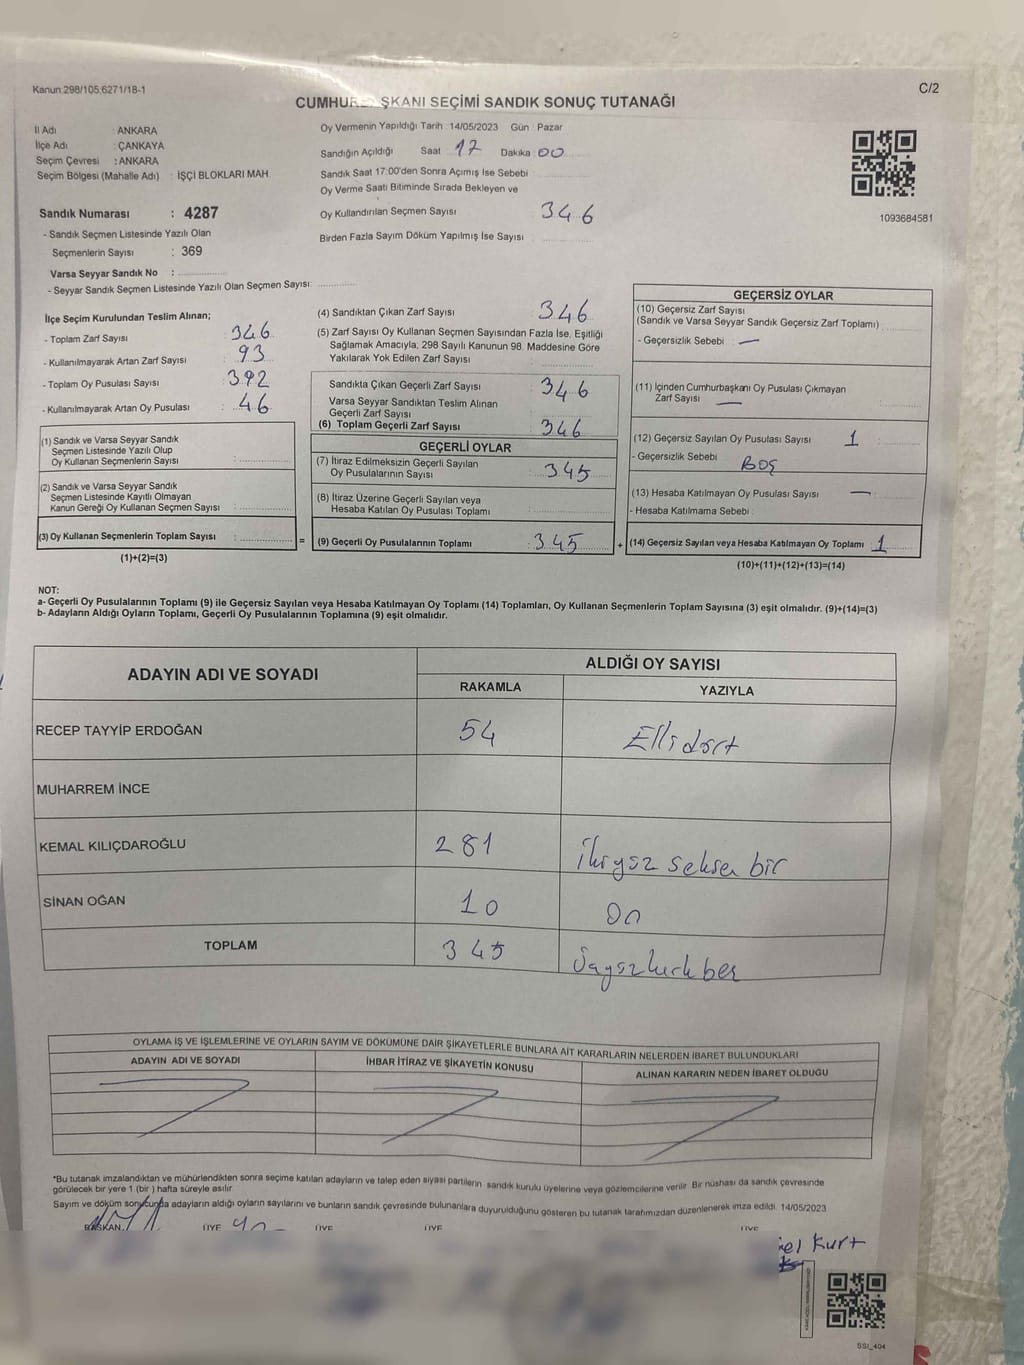 Kanun:298/105,6271/18-1
C/2
CUMHUR ŞKANI SEÇİMİ SANDIK SONUÇ TUTANAĞI
İl Adı : ANKARA
İlçe Adı : ÇANKAYA
Seçim Çevresi : ANKARA
Seçim Bölgesi (Mahalle Adı) : İŞÇİ BLOKLARI MAH
Oy Vermenin Yapıldığı Tarih 14/05/2023 Gün Pazar
Sandığın Açıldığı Saat 17 Dakika 00
Sandık Saat 17:00'den Sonra Açımış İse Sebebi
Oy Verme Saati Bitiminde Sırada Bekleyen ve
Oy Kullandırılan Seçmen Sayısı 346
Birden Fazla Sayım Döküm Yapılmış İse Sayısı
1093684581
Sandık Numarası : 4287
- Sandık Seçmen Listesinde Yazılı Olan
Seçmenlerin Sayısı : 369
Varsa Seyyar Sandık No :
- Seyyar Sandık Seçmen Listesinde Yazılı Olan Seçmen Sayısı:
İlçe Seçim Kurulundan Teslim Alınan;
- Toplam Zarf Sayısı : 346
- Kullanılmayarak Artan Zarf Sayısı : 93
- Toplam Oy Pusulası Sayısı : 392
- Kullanılmayarak Artan Oy Pusulası : 46
(1) Sandık ve Varsa Seyyar Sandık
Seçmen Listesinde Yazılı Olup
Oy Kullanan Seçmenlerin Sayısı :
(2) Sandık ve Varsa Seyyar Sandık
Seçmen Listesinde Kayıtlı Olmayan
Kanun Gereği Oy Kullanan Seçmen Sayısı :
(3) Oy Kullanan Seçmenlerin Toplam Sayısı : =
(1)+(2)=(3)
(4) Sandıktan Çıkan Zarf Sayısı 346
(5) Zarf Sayısı Oy Kullanan Seçmen Sayısından Fazla İse, Eşitliği
Sağlamak Amacıyla, 298 Sayılı Kanunun 98. Maddesine Göre
Yakılarak Yok Edilen Zarf Sayısı
Sandıkta Çıkan Geçerli Zarf Sayısı 346
Varsa Seyyar Sandıktan Teslim Alınan
Geçerli Zarf Sayısı
(6) Toplam Geçerli Zarf Sayısı 346
GEÇERLİ OYLAR
(7) İtiraz Edilmeksizin Geçerli Sayılan
Oy Pusulalarının Sayısı 345
(8) İtiraz Üzerine Geçerli Sayılan veya
Hesaba Katılan Oy Pusulası Toplamı
(9) Geçerli Oy Pusulalarının Toplamı : 345 +
GEÇERSİZ OYLAR
(10) Geçersiz Zarf Sayısı
(Sandık ve Varsa Seyyar Sandık Geçersiz Zarf Toplamı)
- Geçersizlik Sebebi : —
(11) İçinden Cumhurbaşkanı Oy Pusulası Çıkmayan
Zarf Sayısı —
(12) Geçersiz Sayılan Oy Pusulası Sayısı 1
- Geçersizlik Sebebi : BOŞ
(13) Hesaba Katılmayan Oy Pusulası Sayısı —
- Hesaba Katılmama Sebebi :
(14) Geçersiz Sayılan veya Hesaba Katılmayan Oy Toplamı : 1
(10)+(11)+(12)+(13)=(14)
NOT:
a- Geçerli Oy Pusulalarının Toplamı (9) ile Geçersiz Sayılan veya Hesaba Katılmayan Oy Toplamı (14) Toplamları, Oy Kullanan Seçmenlerin Toplam Sayısına (3) eşit olmalıdır. (9)+(14)=(3)
b- Adayların Aldığı Oyların Toplamı, Geçerli Oy Pusulalarının Toplamına (9) eşit olmalıdır.
ADAYIN ADI VE SOYADI ALDIĞI OY SAYISI
RAKAMLA YAZIYLA
RECEP TAYYİP ERDOĞAN 54 Ellidört
MUHARREM İNCE
KEMAL KILIÇDAROĞLU 281 İkiyüz seksen bir
SİNAN OĞAN 10 On
TOPLAM 345 Üçyüzkırkbeş
OYLAMA İŞ VE İŞLEMLERİNE VE OYLARIN SAYIM VE DÖKÜMÜNE DAİR ŞİKAYETLERLE BUNLARA AİT KARARLARIN NELERDEN İBARET BULUNDUKLARI
ADAYIN ADI VE SOYADI İHBAR İTİRAZ VE ŞİKAYETİN KONUSU ALINAN KARARIN NEDEN İBARET OLDUĞU
*Bu tutanak imzalandıktan ve mühürlendikten sonra seçime katılan adayların ve talep eden siyasi partilerin sandık kurulu üyelerine veya gözlemcilerine verilir. Bir nüshası da sandık çevresinde
görülecek bir yere 1 (bir) hafta süreyle asılır.
Sayım ve döküm sonucunda adayların aldığı oyların sayılarını ve bunların sandık çevresinde bulunanlara duyurulduğunu gösteren bu tutanak tarafımızdan düzenlenerek imza edildi. 14/05/2023
BAŞKAN ÜYE ÜYE ÜYE ÜYE
Kurt
SSI_404